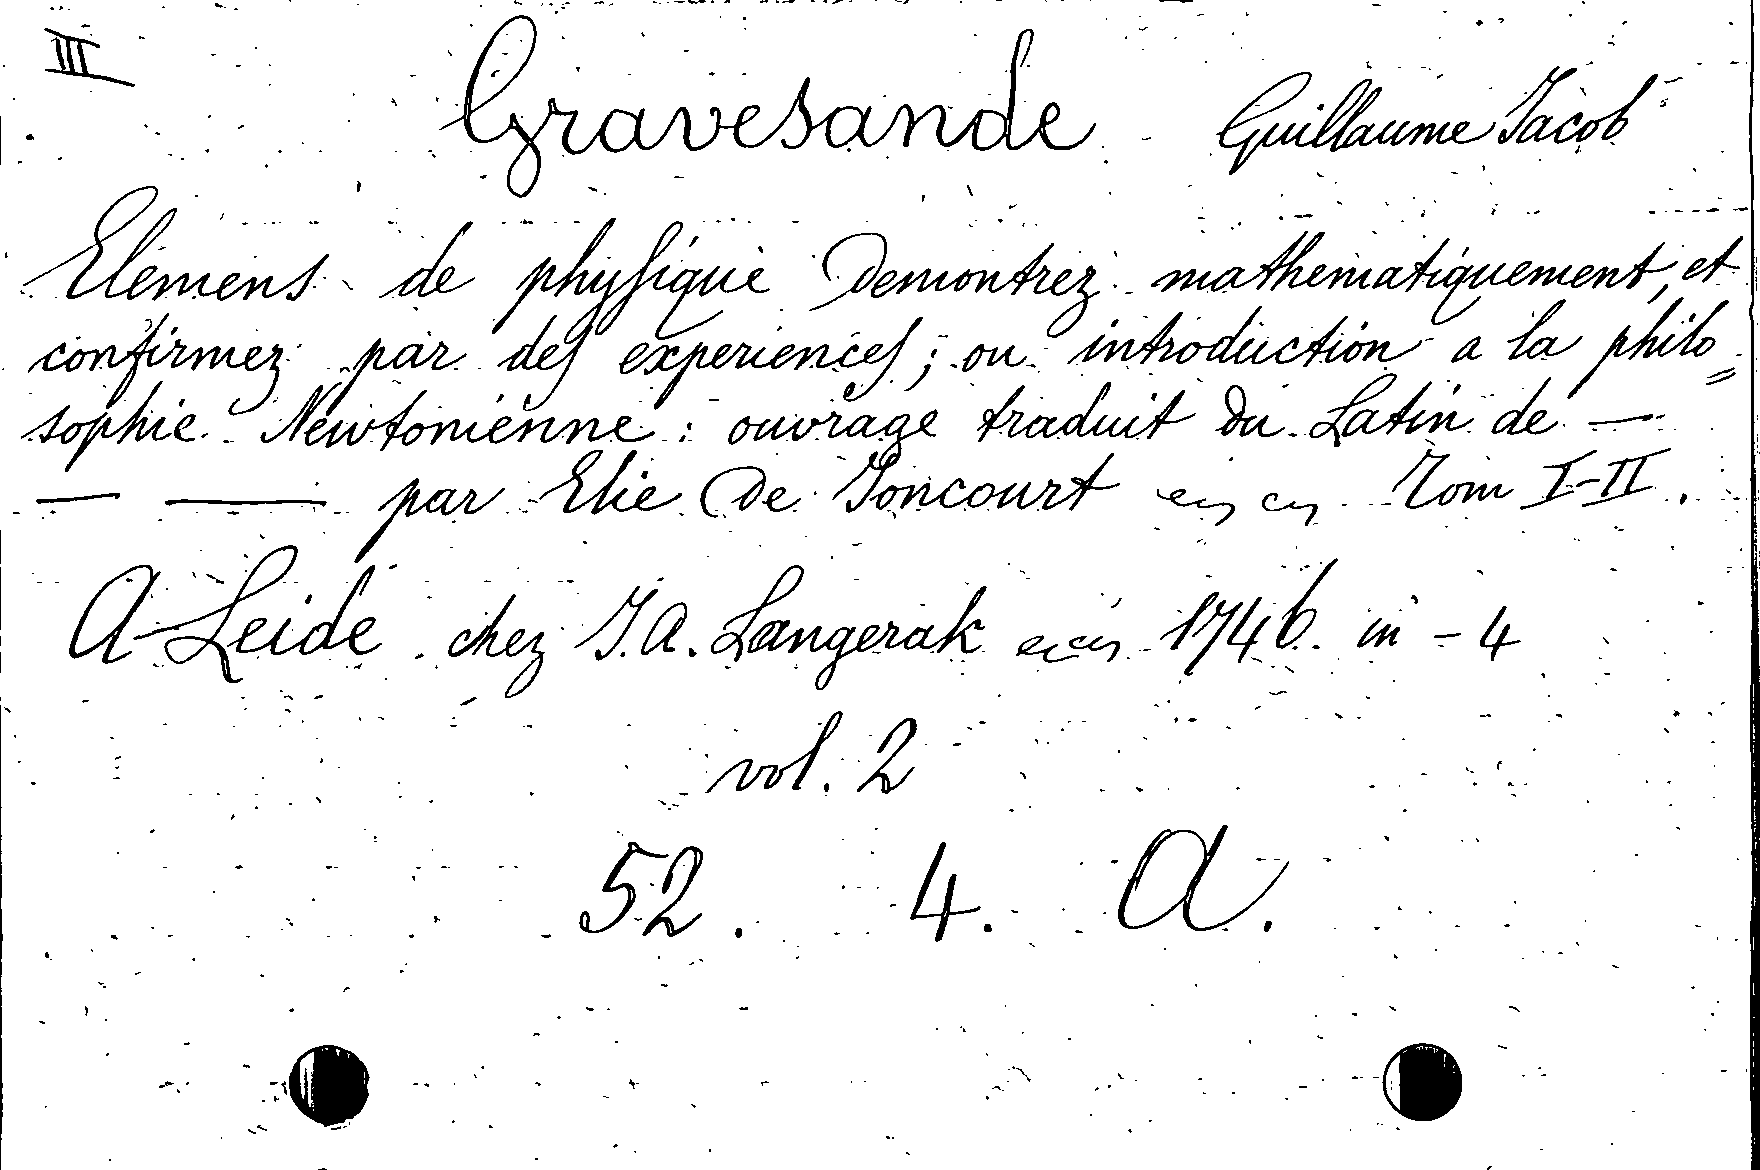 III
Gravesande Guillaume Jacob
Elemens de phyſique demontrez mathematiquement, et
confirmez par des experiences; ou introduction a la philo=
sophie Newtonienne: ouvrage traduit du Latin de —
— — par Elie de Joncourt Tom I-II.
A Leide chez J. A. Langerak 1746. in-4
vol. 2
52. 4. A.